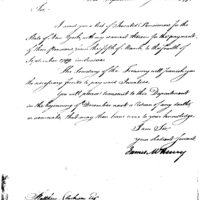 Sir.
I send you a List of Invalid Pensioners for the
State of New York, with my warrant thereon for the payment
of their Pensions from the fifth of March to the fourth of
September 1799 inclusive.
The Secretary of the Treasury will furnish you
the necessary funds to pay said Invalids.
You will please transmit to this Department
in the beginning of December next a Return of any deaths,
or removals that may have been to your knowledge.
I am Sir
your obedient Servant
James McHenry
Esq.